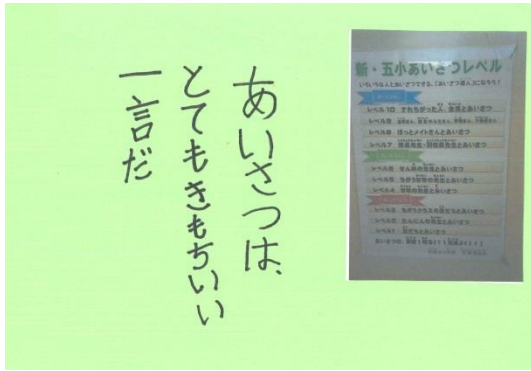 あいさつは、
とてもきもちいい
一言だ
新・五小あいさつレベル
いろいろな人とあいさつできる、「あいさつ達人」になろう!
レベル10 すれちがった人、全員とあいさつ
レベル9
レベル8 ほっとメイトさんとあいさつ
レベル7 校長先生・副校長先生とあいさつ
レベル6
レベル5 ちがう学年の先生とあいさつ
レベル4 学年の先生とあいさつ
レベル3 ちがうクラスの友だちとあいさつ
レベル2 たんにんの先生とあいさつ
レベル1 友だちとあいさつ